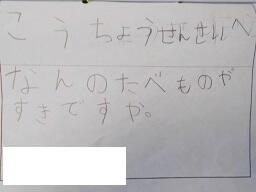 こうちょうせんせいへ
なんのたべものが
すきですか。